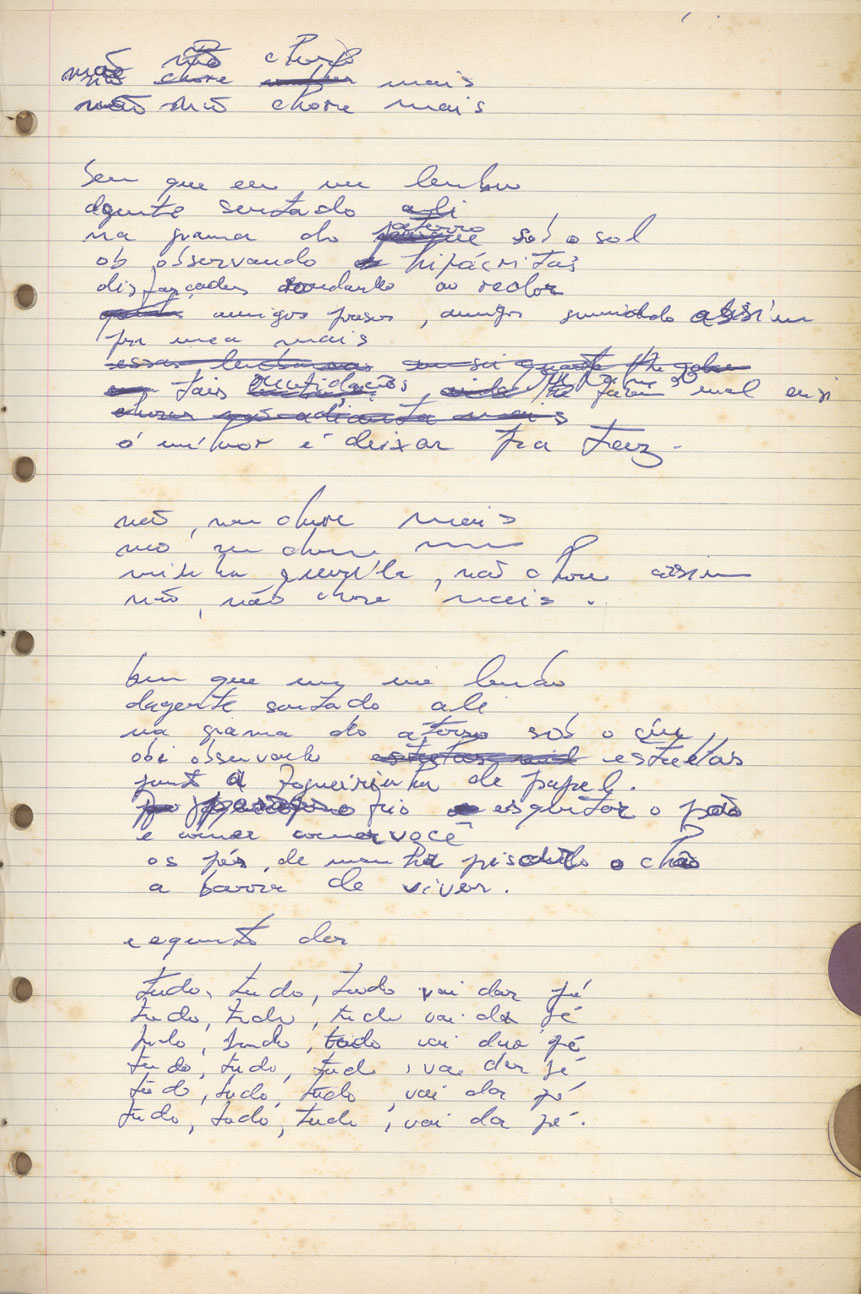 não chore
não chore mais
não não chore mais
bem que eu me lembro
dagente sentado ali
na grama do aterro sob o sol
ob observando hipócritas
disfarçados rondando ao redor
amigos presos, amigos sumindo assim
pra nunca mais
tais recordações
o melhor é deixar pra traz.
não, não chore mais
não, não chore mais
minha, não chore assim
não, não chore mais.
bem que eu me lembro
dagente sentado ali
na grama do aterro sob o céu
obi observando estrelas
junto a fogueirinha de papel.
frio esquentar o pão
e comer com você
os pés, de manhã pisando o chão
a barra de viver.
tudo, tudo, tudo vai dar pé
tudo, tudo, tudo vai dar pé
tudo, tudo, tudo vai dar pé
tudo, tudo, tudo, vai dar pé
tudo, tudo, tudo, vai dar pé
tudo, tudo, tudo, vai dar pé.